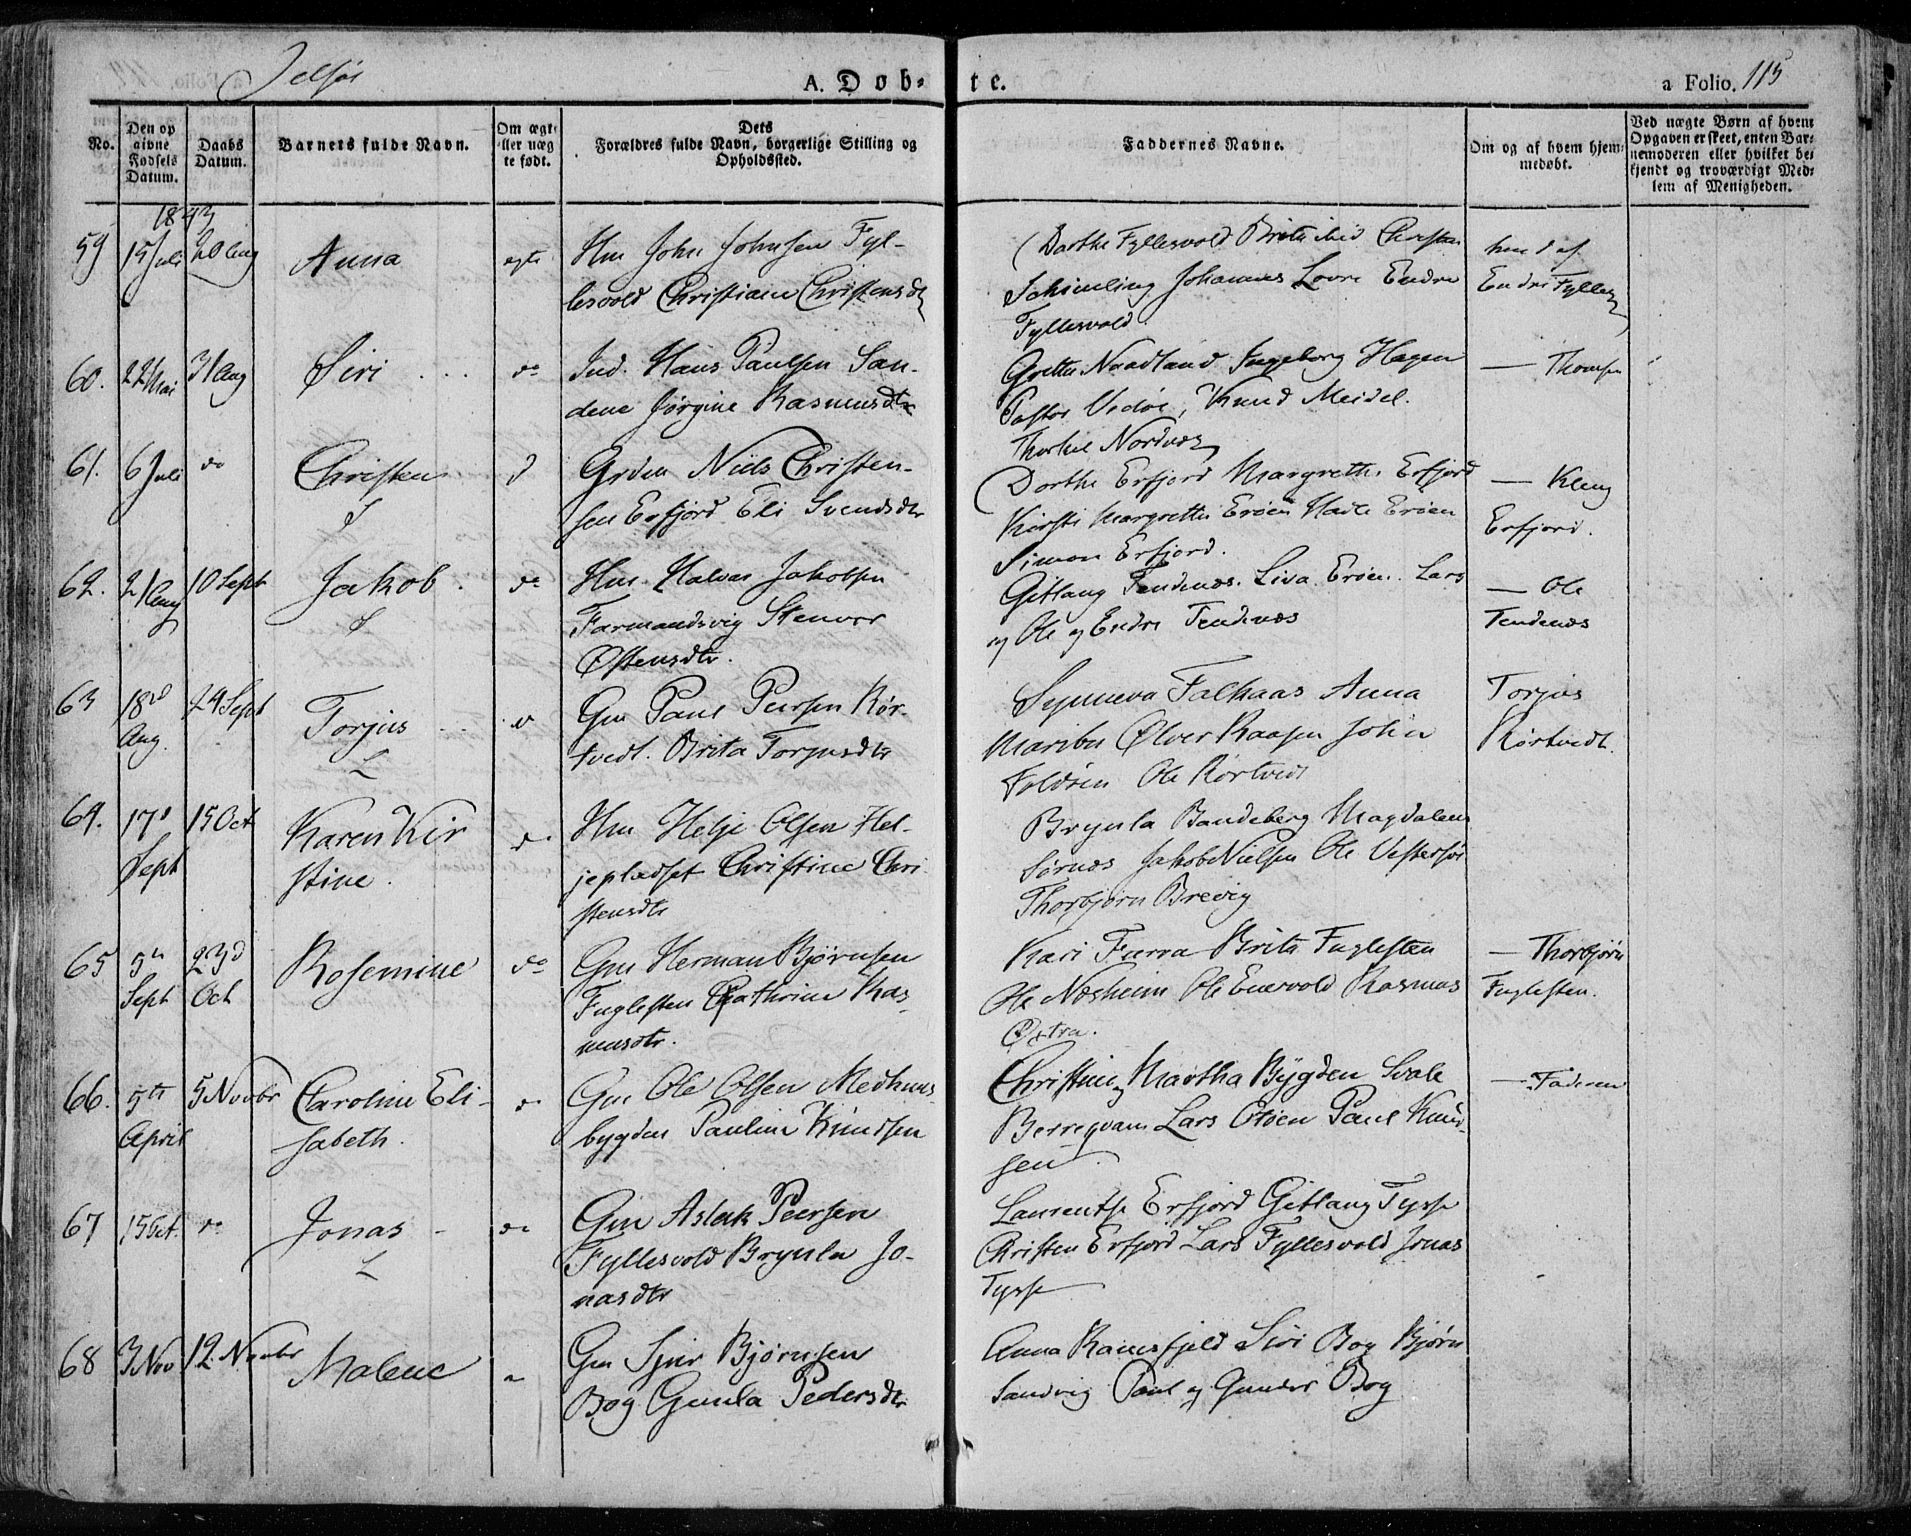 Jelsøe
A. Døb-te.
a Folio. 115
No.
Den op
givne
Fødsels
Datum.
Daabs
Datum.
Barnets fulde Navn.
Om ægte
eller uæg
te født.
Dets
Forældres fulde Navn, borgerlige Stilling og
Opholdssted.
Faddernes Navne.
Om og af hvem hjem-
medøbt.
Ved uægte Børn af hvem
Opgaven er skeet, enten Bar-
nemoderen eller hvilket be-
kjendt og troværdigt Med-
lem af Menigheden.
1843
59 15 Juli 20 Aug Anna ægte Hm John Johnsen Fyl-
lesvold Christiane Christensdtr
Dorthe Fyllesvold Brita Christen
Schimling Johannes Lovre Endre
Fyllesvold
hmd af
Endre Fylles
60. 22 Mai 31 Aug Siri do Ind. Hans Paulsen San-
dene Jørgine Rasmusdtr
Grethe Naadland Ingeborg Hagen
Pastor Vedøe, Knud Meidel.
Thorkel Nordnes
— Thomsen
61. 6 Juli do Christen d Grdm Niels Christen-
sen Erfjord Eli Svendsdtr
Dorthe Erfjord Margrethe Erfjord
Kirsti Margrethe Erøen Hadle Erøen
Simon Erfjord.
— Kleng
Erfjord.
62. 21 Aug 10 Sept Jakob. do Hm. Halvor Jakobsen
Farmandsvig Stenvor
Østensdtr.
Gitlaug Tendenæs. Liva Erøen. Lars
og Ole og Endre Tendenæs
— Ole
Tendenæs
63 18d Aug. 24 Sept Torjus do Gm Paul Peersen Rør-
tvedt. Brita Torjusdtr
Synneva Falkaas Anna
Maribu Ølver Raasen John
Foldøen Ole Rørtvedt
Torjus
Rørtvedt.
64. 17d Sept 15 Oct Karen Kir
stine.
do Hm Helje Olsen Hel-
jepladset Christine Chri
stensdtr
Brynla Bandeberg Magdalene
Sørnæs Jakob Nielsen Ole Vestersøe
Thorbjørn Brevig
65 5te Sept 23d Oct Rosemine do Gm Herman Bjørnsen
Fuglesten Cathrine Ras-
musdtr.
Kari Furra Brita Fuglesten
Ole Næsheim Ole Enervold Rasmus
Østra.
— Thorbjørn
Fuglesten.
66. 5te April 5 Novbr Caroline Eli-
sabeth.
do Gm Ole Olsen Medhus-
bygden Pauline Knudsen
Christine og Martha Bygden Svale
Berrequam Lars Otøen Paul Knud-
sen
— Faderen
67 15 Oct. do Jonas do Gm Aslak Peersen
Fyllesvold Brynla Jo-
nasdtr
Laurentse Erfjord Gitlaug Tysse
Christen Erfjord Lars Fyllesvold Jonas
Tysse
68 3 Nov 12. Novbr Malene Gm Sjur Bjørnsen
Bog Gunla Pedersdtr
Anna Ramsfjeld Siri Bog Bjørn
Sandvig Paul og Gunder Bog